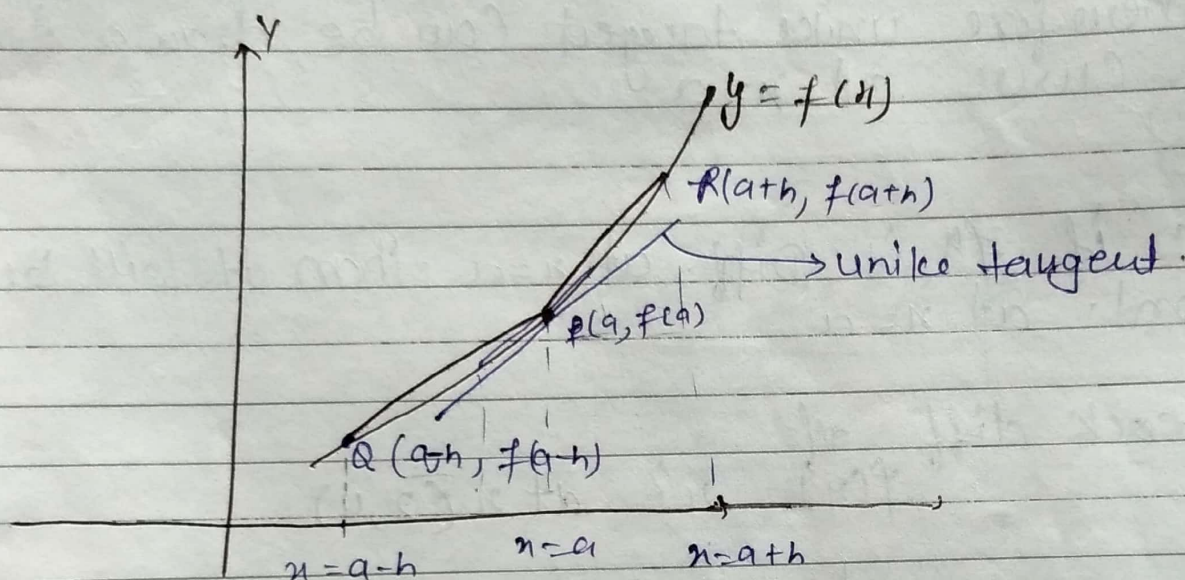 Y
y = f(x)
R(a+h, f(a+h)
unike tangent.
P(a, f(a)
Q (a-h, f(a-h)
x=a-h
x=a
x=a+h